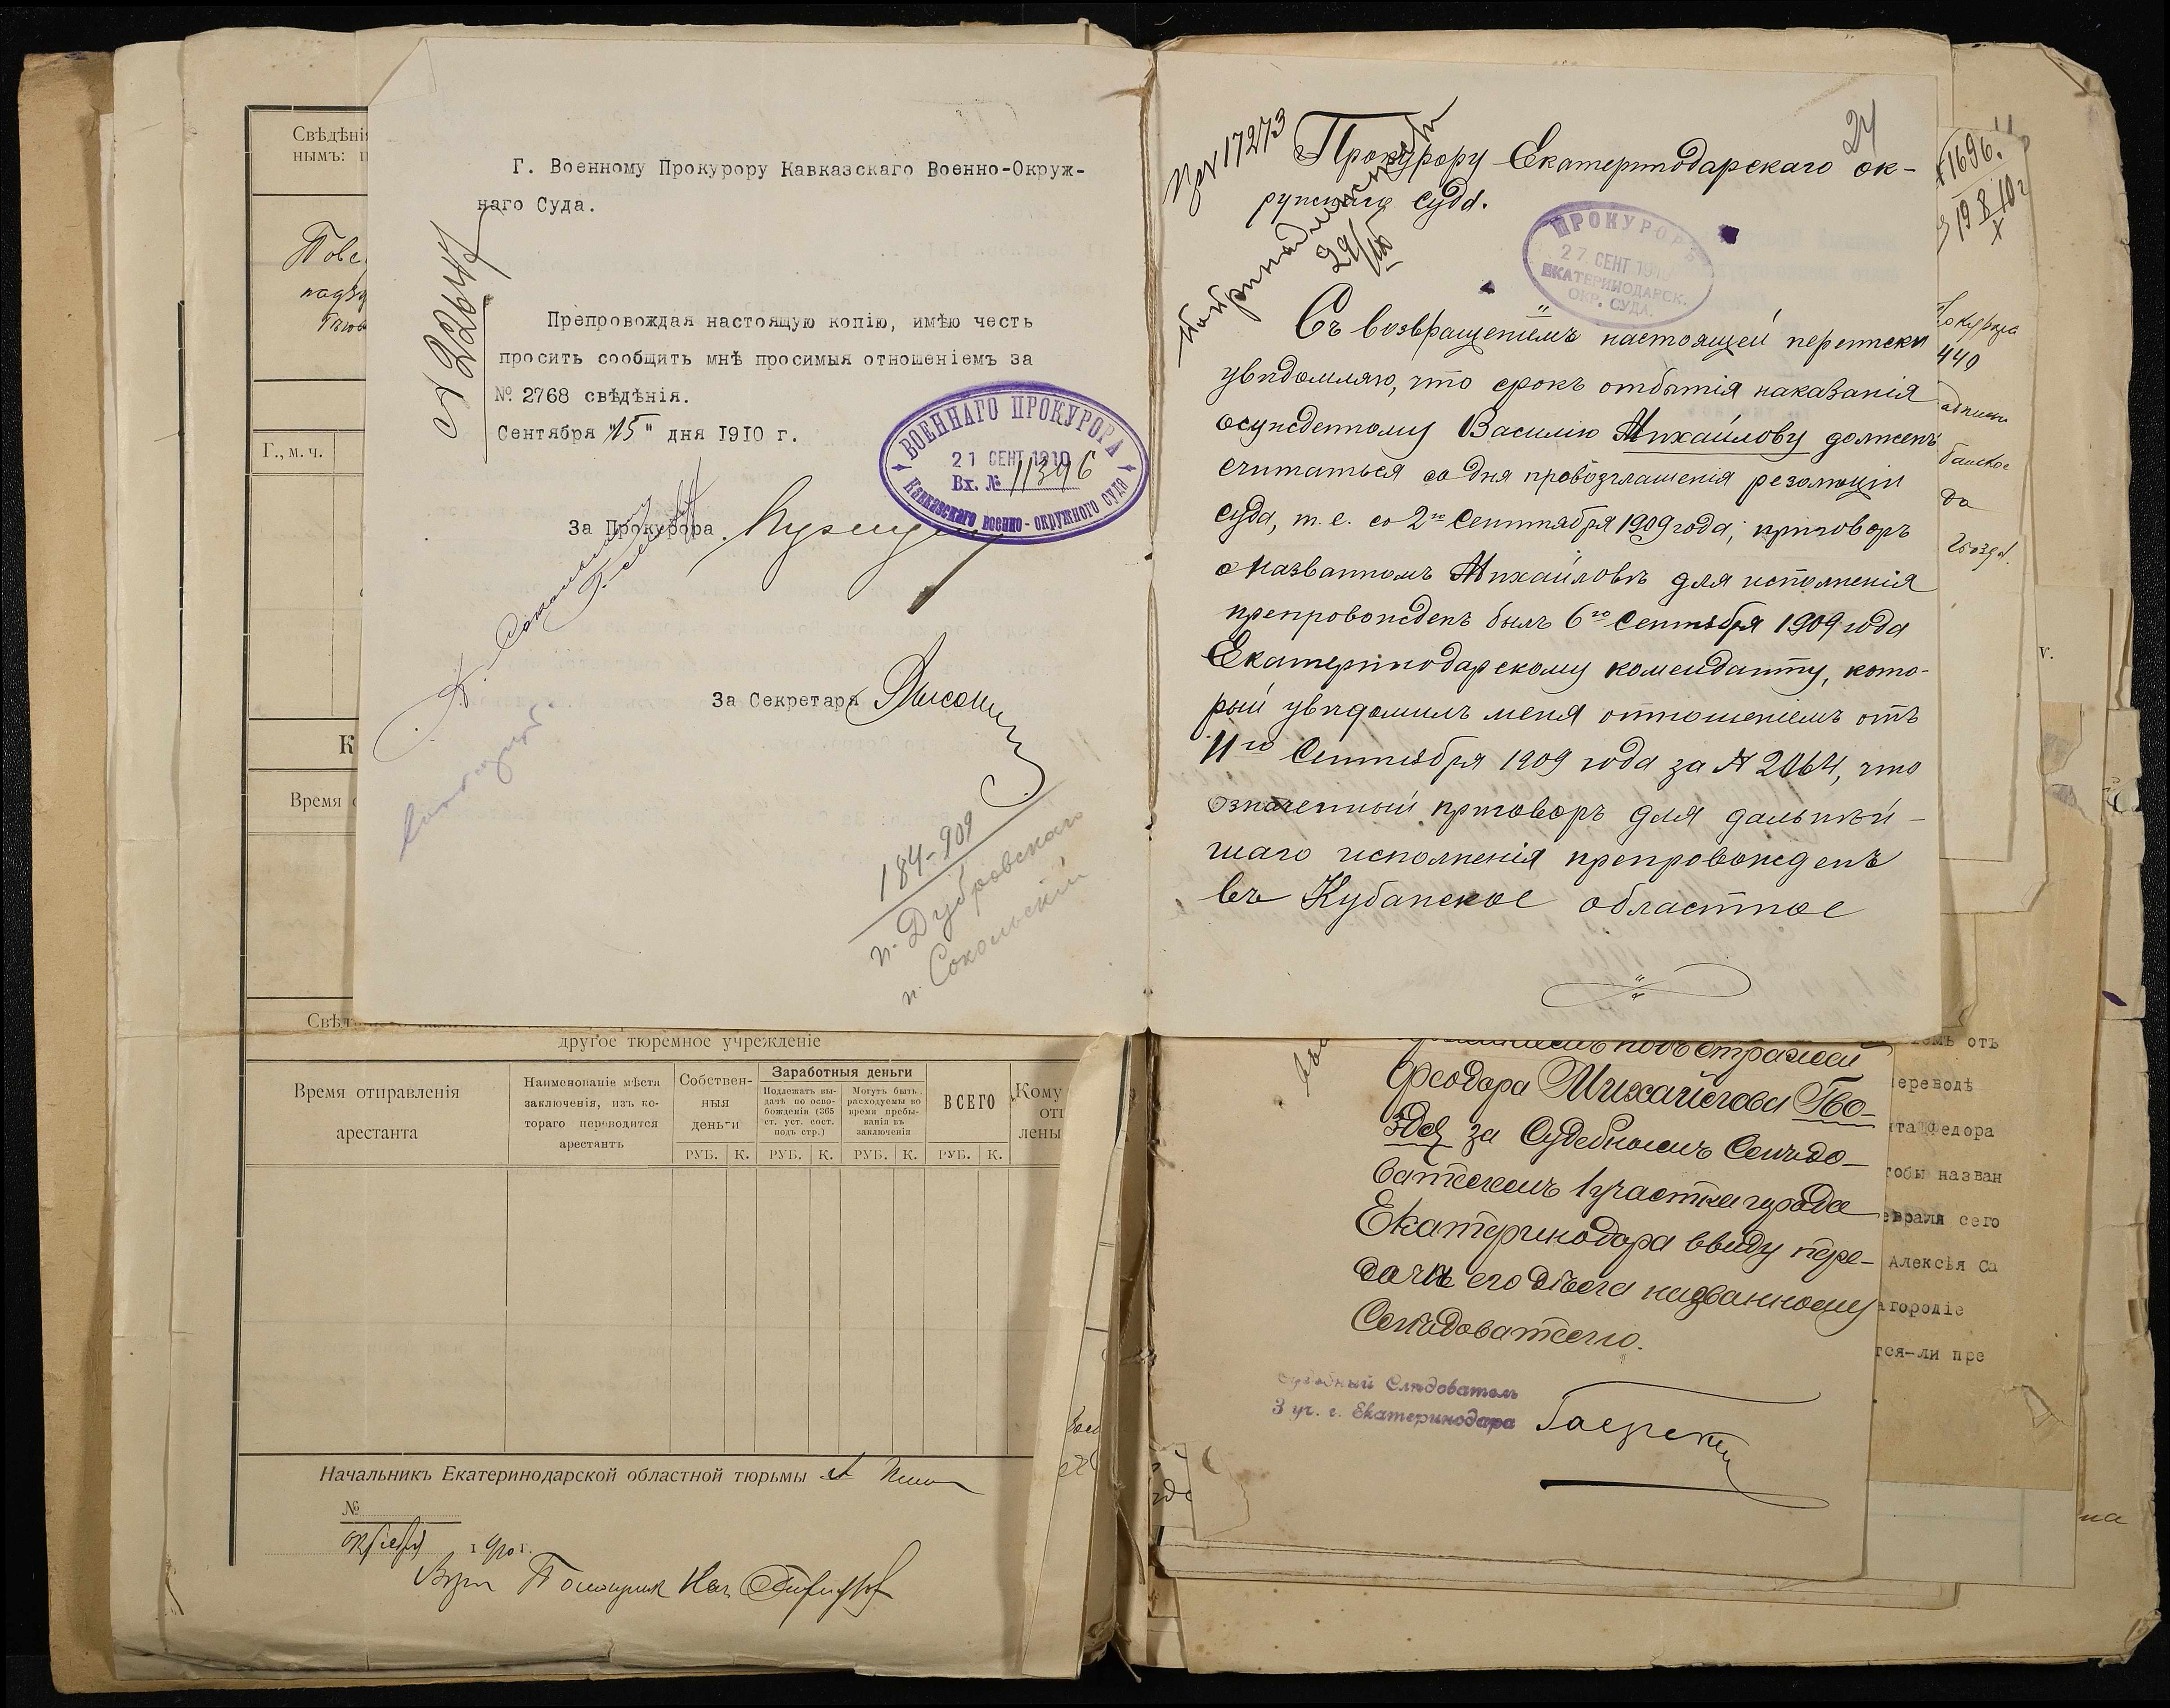 Г. Военному Прокурору Кавказскаго Военно-Окруж-
наго Суда.
Препровождая настоящую копію, имѣю честь
просить сообщить мнѣ просимыя отношеніемъ за
№ 2768 свѣдѣнія.
Сентября "15" дня 1910 г.
ВОЕННАГО ПРОКУРОРА
21 СЕНТ 1910
Вх. № 11396
Кавказскаго военно-окружного суда
За Прокурора
За Секретаря
184-909
п. Дубровскаго
п. Сокольскій
24
№ 17273
Прокурору Екатеринодарскаго ок-
ружнаго суда.
29/IX
ПРОКУРОРЪ
27 СЕНТ 1910
ЕКАТЕРИНОДАРСК.
ОКР. СУДА.
Съ возвращеніемъ настоящей переписки
увѣдомляю, что срокъ отбытія наказанія
осужденному Василію Михайлову долженъ
считаться со дня провозглашенія резолюціи
суда, т. е. со 2го Сентября 1909 года; приговоръ
о названномъ Михайловѣ для исполненія
препровожденъ былъ 6го Сентября 1909 года
Екатеринодарскому коменданту, кото-
рый увѣдомилъ меня отношеніемъ отъ
11го Сентября 1909 года за № 2064, что
означенный приговоръ для дальнѣй-
шаго исполненія препровожденъ
въ Кубанское областное
1696.
19 8/X 10 г
440
да
Свѣдѣнія
нымъ:
Г., м. ч.
К
Время
Свѣд
другое тюремное учрежденіе
Время отправленія
арестанта
Наименованіе мѣста
заключенія, изъ ко-
тораго переводится
арестантъ
Собствен-
ныя
деньги
Заработныя деньги
Подлежатъ вы-
дачѣ по осво-
божденіи (365
ст. уст. сост.
подъ стр.)
Могутъ быть
расходуемы во
время пребы-
ванія въ
заключеніи
ВСЕГО
Кому
от
лены
РУБ. К. РУБ. К. РУБ. К. РУБ. К.
Начальникъ Екатеринодарской областной тюрьмы
№
октября 1910 г.
Помощник Нач.
подъ стражей
Ѳеодора Михайлова Гво-
здя за Судебнымъ Слѣдо-
вателемъ 1 участка города
Екатеринодара ввиду пере-
дачи его дѣла названному
Слѣдователю.
Судебный Слѣдователь
3 уч. г. Екатеринодара
емъ отъ
переводѣ
та Федора
тобы назван
евраля сего
Алексѣя Са
агородіе
тся-ли пре
v.
на